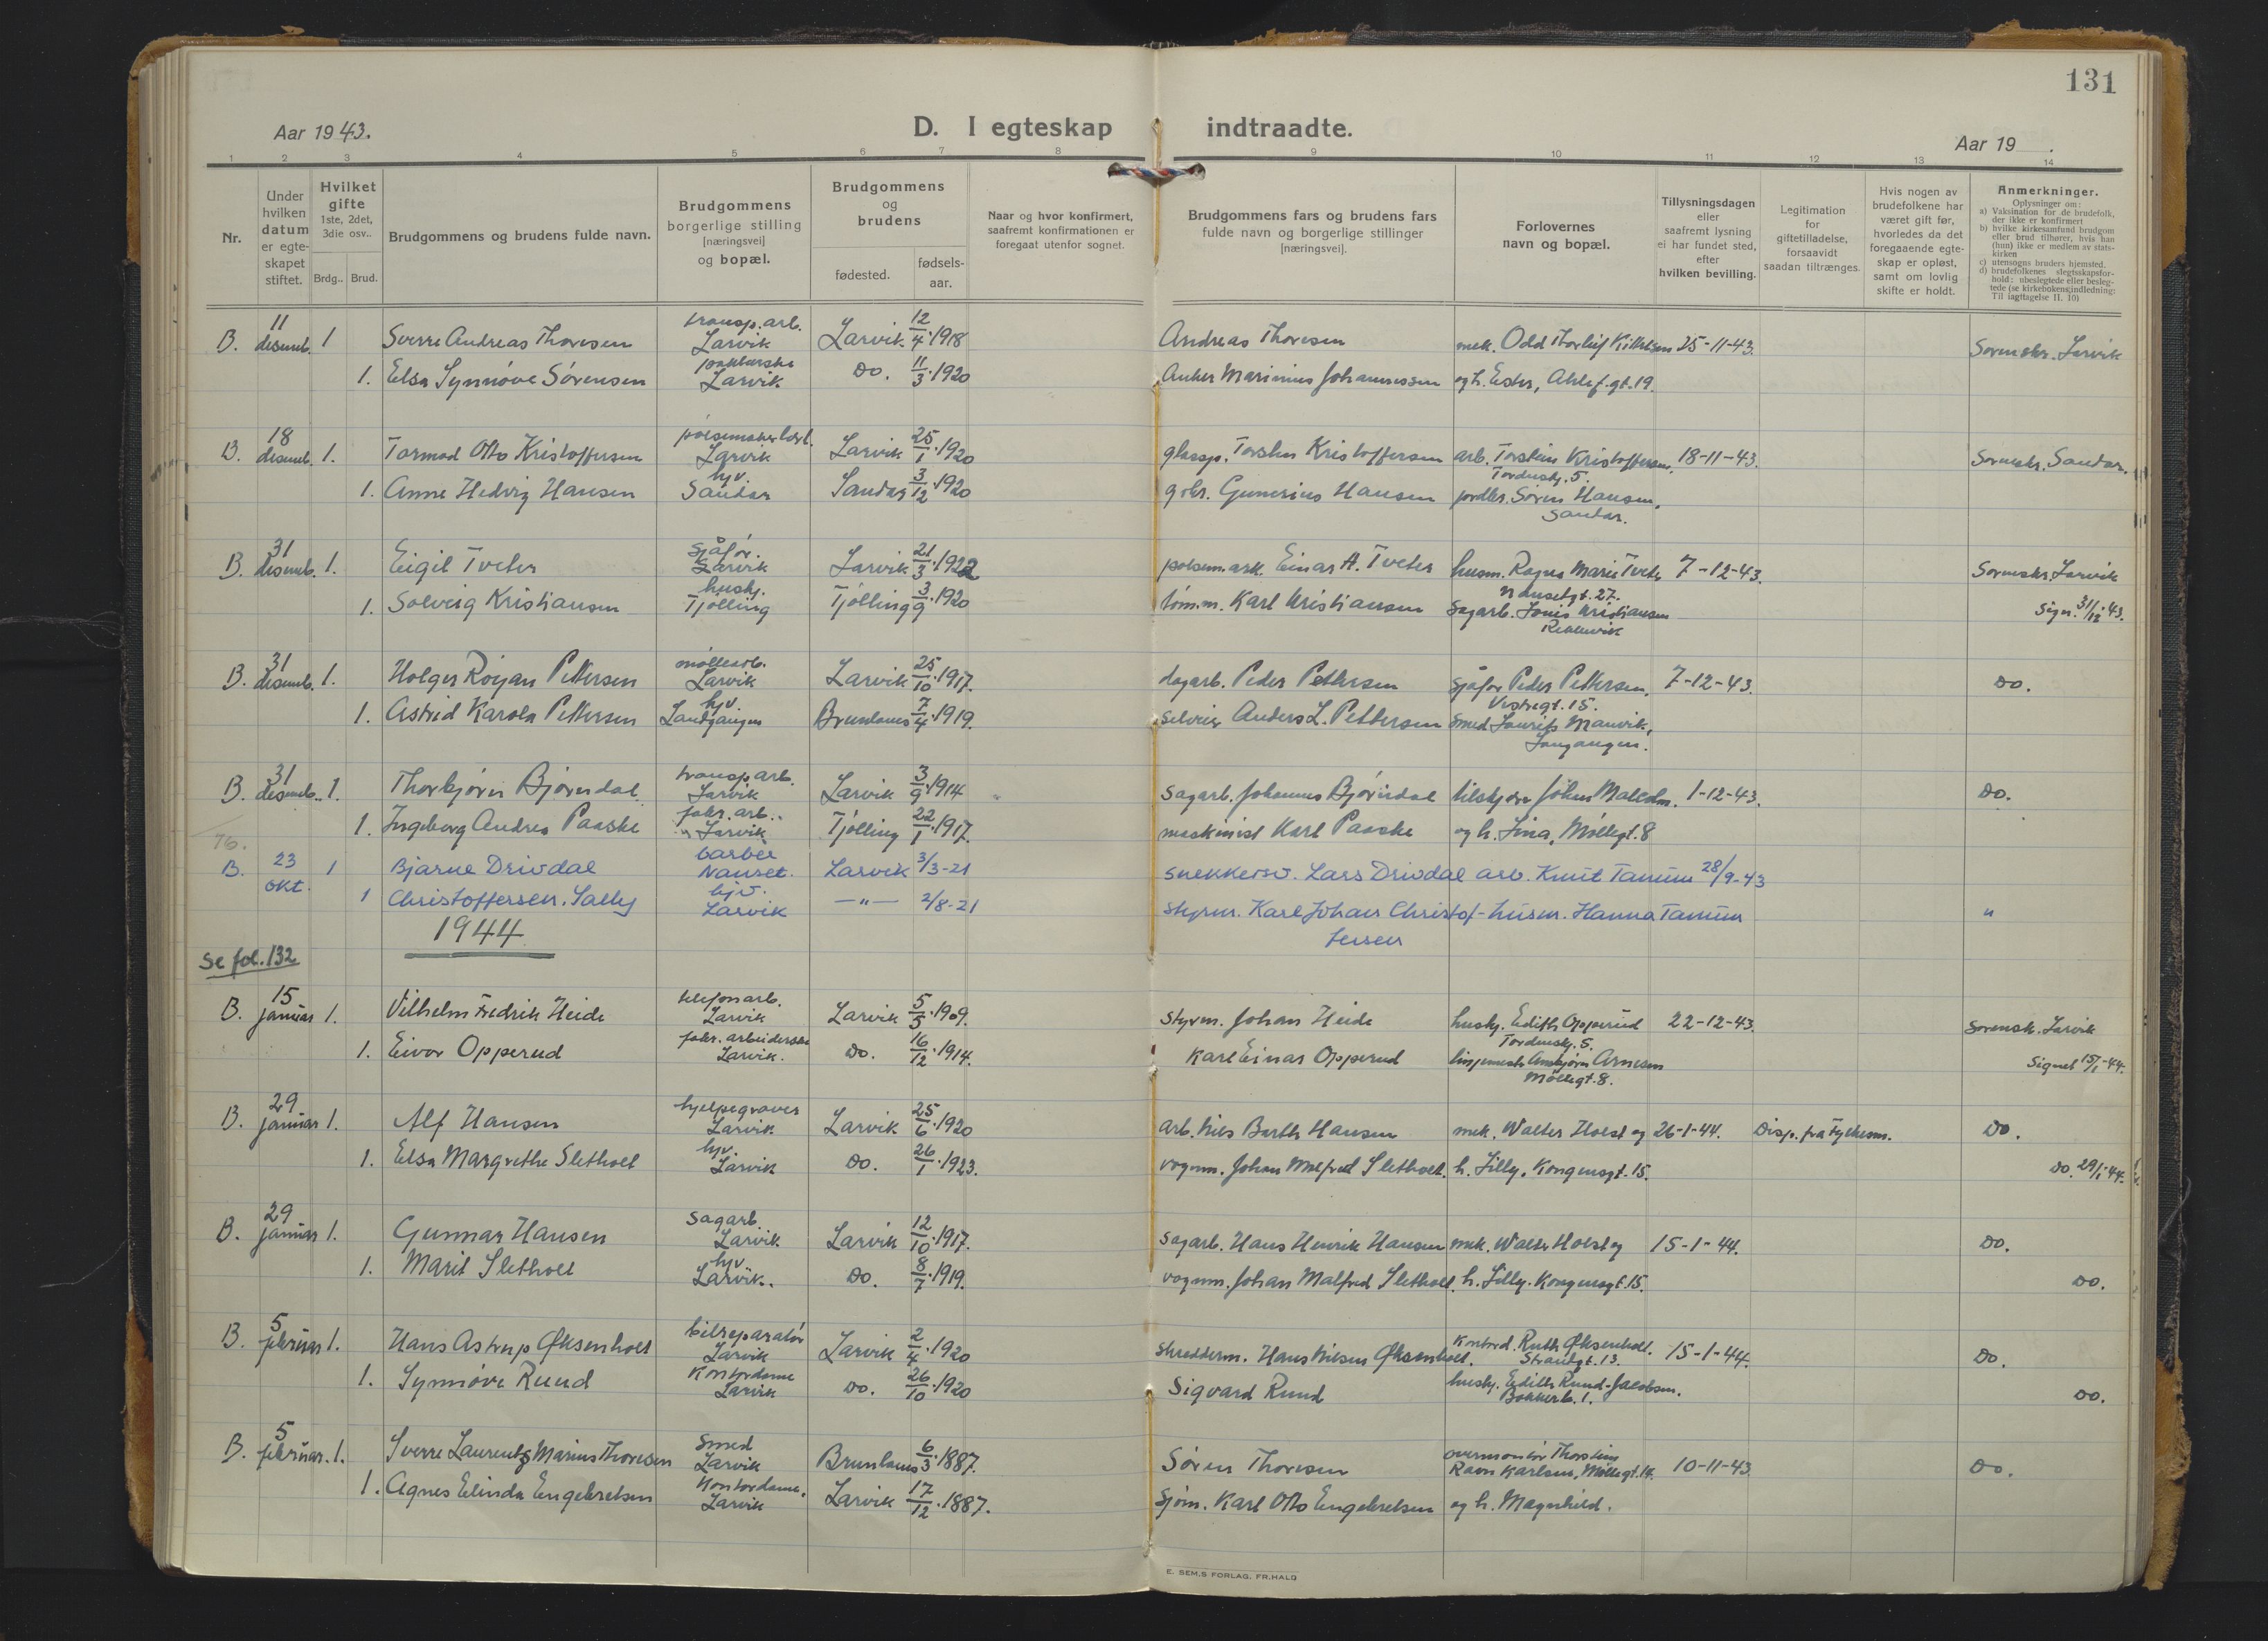 131
Aar 1943.
D. I egteskap indtraadte.
Aar 19 .
1 2 3 4 5 6 7 8 9 10 11 12 13 14
Nr.
Under hvilken datum er egteskapet stiftet.
Hvilket gifte 1ste, 2det, 3die osv..
Brdg.. Brud.
Brudgommens og brudens fulde navn.
Brudgommens borgerlige stilling [næringsvei] og bopæl.
Brudgommens og brudens
fødested.
fødsels-aar.
Naar og hvor konfirmert, saafremt konfirmationen er foregaat utenfor sognet.
Brudgommens fars og brudens fars fulde navn og borgerlige stillinger [næringsvei].
Forlovernes navn og bopæl.
Tillysningsdagen eller saafremt lysning ei har fundet sted, efter hvilken bevilling.
Legitimation for giftetilladelse, forsaavidt saadan tiltrænges.
Hvis nogen av brudefolkene har været gift før, hvorledes da det foregaaende egteskap er opløst, samt om lovlig skifte er holdt.
Anmerkninger.
Oplysninger om:
a) Vaksination for de brudefolk, der ikke er konfirmert
b) hvilke kirkesamfund brudgom eller brud tilhører, hvis han (hun) ikke er medlem av statskirken
c) utensogns bruders hjemsted.
d) brudefolkenes slegtsskapsforhold: ubeslegtede eller beslegtede (se kirkebokens indledning: Til iagttagelse II. 10)
B. 11 desemb. 1 Sverre Andreas Thoresen transp. arb. Larvik Larvik 12/4.1918 Andreas Thoresen mek. Odd Thorleif Kittelsen 25-11-43. Sorenskr. Larvik
1. Elsa Synnøve Sørensen pakkerske Larvik Do. 11/3.1920 Anker Marinius Johannessen og h. Ester, Ahlef. gt. 19.
B. 18 desemb. 1. Tormod Otto Kristoffersen pølsemakerlærl. Larvik Larvik 25/1.1920 glassp. Torsten Kristoffersen arb. Torstein Kristoffersen, Tordenskj. 5. 18-11-43. Sorenskr. Sandar.
1. Anne Hedvig Hansen hjv. Sandar Sandar 3/12.1920 gbr. Gunerius Hansen jordbr. Søren Hansen, Sandar.
B. 31 desemb. 1. Eigil Tveter sjåfør. Larvik Larvik 21/3.1922 pølsemak. Einar A. Tveter husm. Ragna Marie Tveter Nansetgt. 27. 7-12-43. Sorenskr. Larvik
1. Solveig Kristiansen huskj. Tjølling Tjølling 3/9.1920 tøm.m. Karl Kristiansen sagarb. Kristiansen Rekkevik Sign. 31/12-43.
B. 31 desemb. 1. Holger Roijan Pettersen møllearb. Larvik Larvik 25/10.1917. dagarb. Peder Pettersen sjåfør Peder Pettersen, Vestregt. 15. 7-12-43. Do.
1. Astrid Karola Pettersen hjv. Landgangen Brunlanes 7/4.1919. Selveier Anders L. Pettersen smed Laurits Manvik, Langangen.
B. 31 desemb. 1. Thorbjørn Bjørndal transp. arb. Larvik Larvik 3/9.1914 sagarb. Johannes Bjørndal bilskjører Johan Malcolm. 1-12-43. Do.
1. Ingeborg Andrea Paaske fabr. arb. Larvik Tjølling 22/1.1917. maskinist Karl Paaske og h. Lina, Møllegt. 8
76.
B. 23 okt. 1 Bjarne Drivdal barber Nanset. Larvik 3/3-21 snekkersv. Lars Drivdal arb. Knut Tanum 28/9-43
1 Christoffersen. Sally hjv. Larvik —"— 2/8-21 styrm. Karl Johan Christoffersen husm. Hanna Tanum "
1944
Se fol. 132
B. 15 januar 1. Vilhelm Fredrik Heide telefonarb. Larvik Larvik 5/5.1909. styrm. Johan Heide huskj. Edith Opperud Tordenskj. 5. 22-12-43. Sorensk. Larvik
1. Eivor Opperud fabr. arbeiderske Larvik. Do. 16/12.1914. Karl Einar Opperud linjemester Arnesen Møllegt. 8. Signet 15/1-44.
B. 29 januar 1. Alf Hansen hjelpegraver Larvik Larvik 25/6.1920 arb. Nils Barth Hansen mek. Walter Holst og 26-1-44. Disp. fra Fylkesm. Do.
1. Elsa Margrethe Sletholt hjv. Larvik Do. 26/1.1923. vognm. Johan Malfred Sletholt. h. Lilly, Kongensgt. 15. Do. 29/1-44.
B. 29 januar 1. Gunnar Hansen sagarb. Larvik Larvik 12/10.1917. sagarb. Hans Henrik Hansen mek. Walter Holst og 15-1-44. Do.
1. Marit Sletholt hjv. Larvik. Do. 8/7.1919. vognm. Johan Malfred Sletholt. h. Lilly. Kongensgt. 15. Do.
B. 5 februar 1. Hans Astrup Øksenholt bilreparatør Larvik Larvik 2/4.1920 skredderm. Hans Nilsen Øksenholt. kontord. Ruth Øksenholt. Strandgt. 13. 15-1-44. Do.
1. Synnøve Ruud kontordame Larvik Do. 26/10.1920 Sigvard Ruud huskj. Edith Ruud-Jacobsen. Bøkkerb. 1. Do.
B. 5 februar. 1. Sverre Laurentz Marius Thoresen smed Larvik Brunlanes 6/3.1887. Søren Thoresen overmontør Thorstein Ravn Karlsen, Møllegt. 14. 10-11-43 Do.
1. Agnes Elinda Engebretsen kontordame. Larvik Larvik 17/12.1887. sjøm. Karl Otto Engebretsen og h. Magnhild.
E. SEM,S FORLAG, FR.HALD